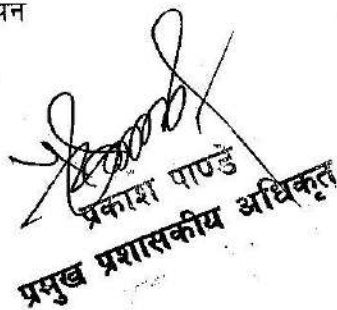 यन
प्रकाश पाण्डे
प्रमुख प्रशासकीय अधिकृत